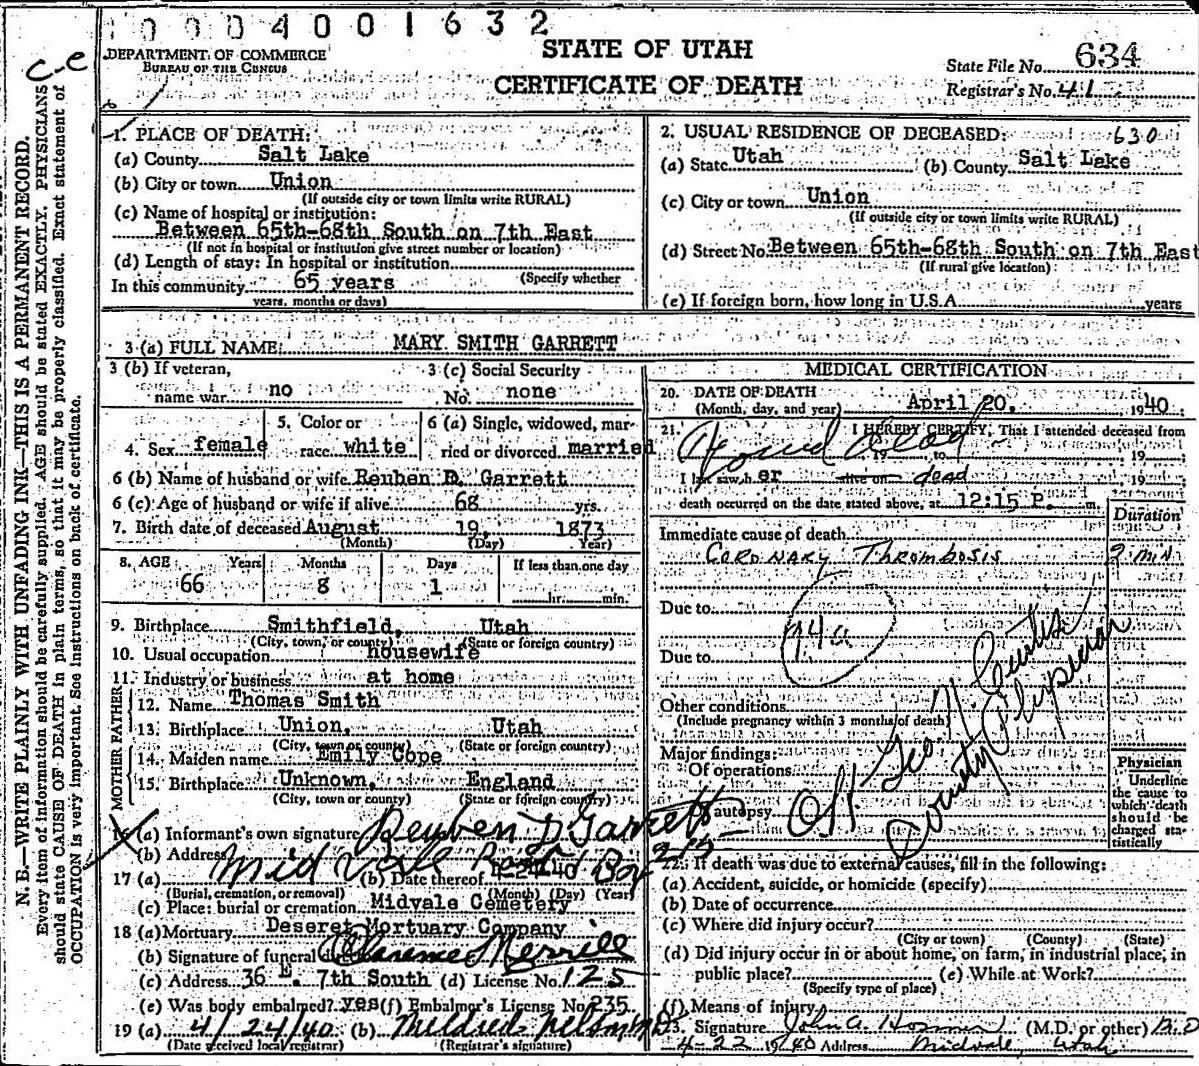 0004001632
C-e
DEPARTMENT OF COMMERCE
BUREAU OF THE CENSUS
STATE OF UTAH
CERTIFICATE OF DEATH
State File No. 634
Registrar's No. 41
N. B.—WRITE PLAINLY WITH UNFADING INK—THIS IS A PERMANENT RECORD.
Every item of information should be carefully supplied. AGE should be stated EXACTLY. PHYSICIANS
should state CAUSE OF DEATH in plain terms, so that it may be properly classified. Exact statement of
OCCUPATION is very important. See instructions on back of certificate.
1. PLACE OF DEATH:
(a) County Salt Lake
(b) City or town Union
(If outside city or town limits write RURAL)
(c) Name of hospital or institution:
Between 65th-68th South on 7th East
(If not in hospital or institution give street number or location)
(d) Length of stay: In hospital or institution
(Specify whether
In this community 65 years
years, months or days)
2. USUAL RESIDENCE OF DECEASED: 630
(a) State Utah (b) County Salt Lake
(c) City or town Union
(If outside city or town limits write RURAL)
(d) Street No. Between 65th-68th South on 7th East
(If rural give location)
(e) If foreign born, how long in U.S.A. years
3 (a) FULL NAME: MARY SMITH GARRETT
3 (b) If veteran,
name war no
3 (c) Social Security
No. none
4. Sex female
5. Color or
race white
6 (a) Single, widowed, mar-
ried or divorced married
6 (b) Name of husband or wife Reuben D. Garrett
6 (c) Age of husband or wife if alive 68 yrs.
7. Birth date of deceased August 19, 1873
(Month) (Day) Year)
8. AGE Years Months Days If less than one day
66 8 1 hr. min.
9. Birthplace Smithfield, Utah
(City, town, or county) (State or foreign country)
10. Usual occupation housewife
11. Industry or business at home
FATHER
12. Name Thomas Smith
13. Birthplace Union, Utah
(City, town or county) (State or foreign country)
MOTHER
14. Maiden name Emily Cope
15. Birthplace Unknown, England
(City, town or county) (State or foreign country)
16 (a) Informant's own signature Reuben D Garrett
(b) Address Mid Vale Road Box 212
17 (a) (b) Date thereof 4-24-40
(Burial, cremation, or removal) (Month) (Day) (Year)
(c) Place: burial or cremation Midvale Cemetery
18 (a) Mortuary Deseret Mortuary Company
(b) Signature of funeral Clarence Merrill
(c) Address 36 E. 7th South (d) License No. 125
(e) Was body embalmed? yes (f) Embalmer's License No. 235
19 (a) 4/24/40 (b) Mildred Nelson
(Date received local registrar) (Registrar's signature)
MEDICAL CERTIFICATION
20. DATE OF DEATH
(Month, day, and year) April 20, 1940
21. I HEREBY CERTIFY, That I attended deceased from
Found dead
19 to 19
I last saw h er alive on dead 19
death occurred on the date stated above, at 12:15 P. m.
Duration
Immediate cause of death
CORONARY THROMBOSIS 2 min
Due to
94a
Due to
Other conditions
(Include pregnancy within 3 months of death)
Major findings:
Of operations
autopsy
OK. Geo. N. Curtis
County Physician
Physician
Underline
the cause to
which death
should be
charged sta-
tistically
22. If death was due to external causes, fill in the following:
(a) Accident, suicide, or homicide (specify)
(b) Date of occurrence
(c) Where did injury occur?
(City or town) (County) (State)
(d) Did injury occur in or about home, on farm, in industrial place, in
public place? (e) While at Work?
(Specify type of place)
(f) Means of injury
23. Signature John A. Hosmer (M.D. or other) M.D
4-22 1940 Address Midvale, Utah